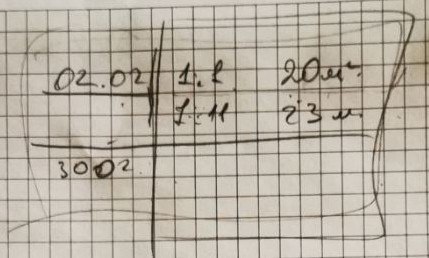 02.02 1.1 20м²
1.11 23 м.
3002